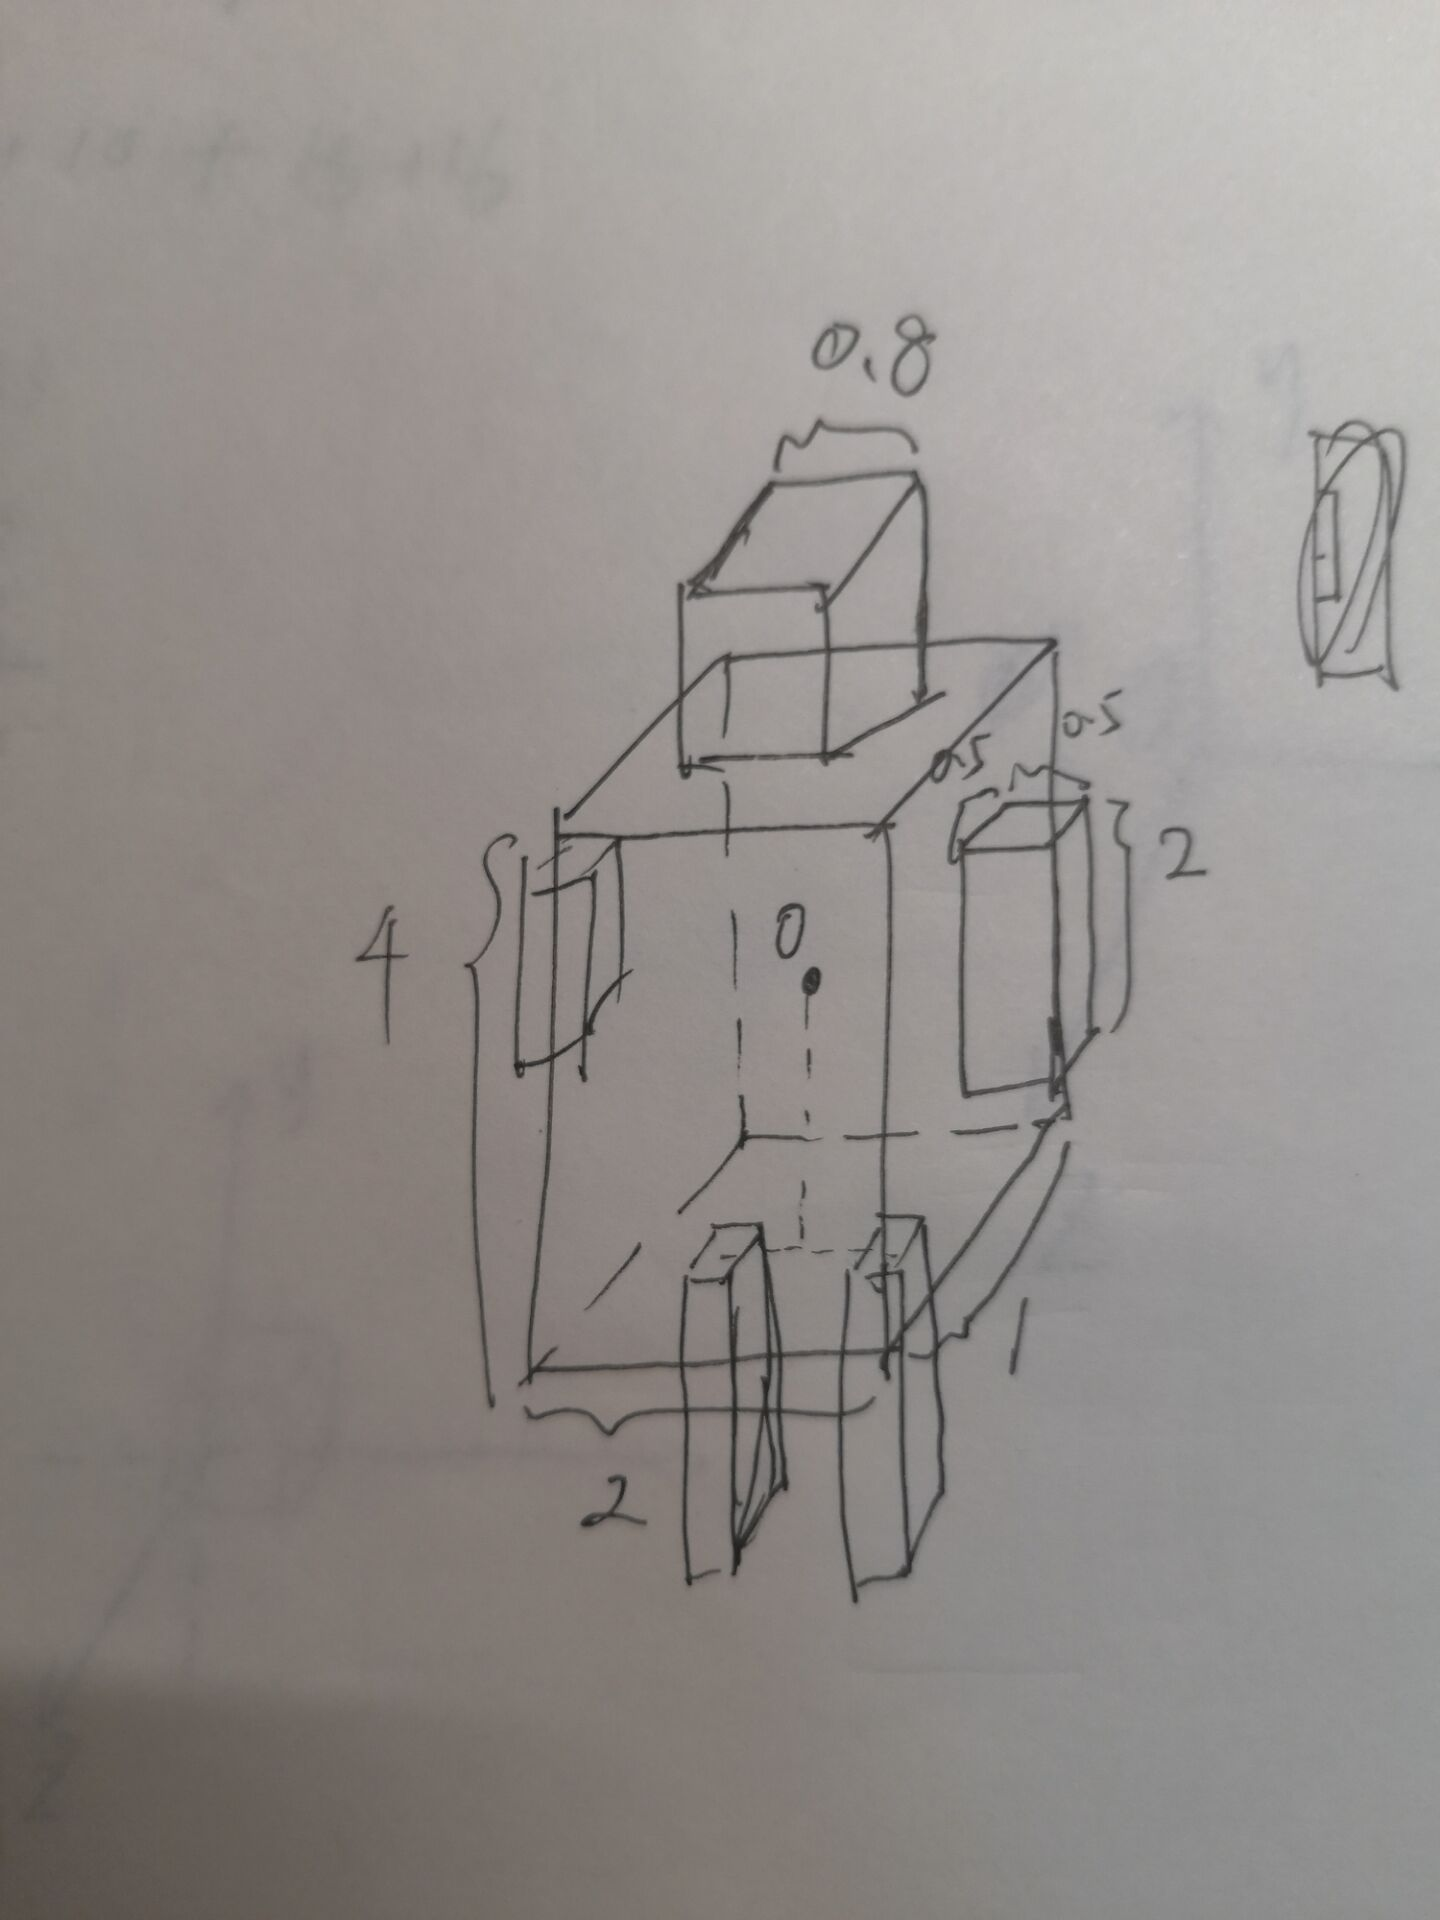 0.8
0.5
0.5
2
4
O
1
2